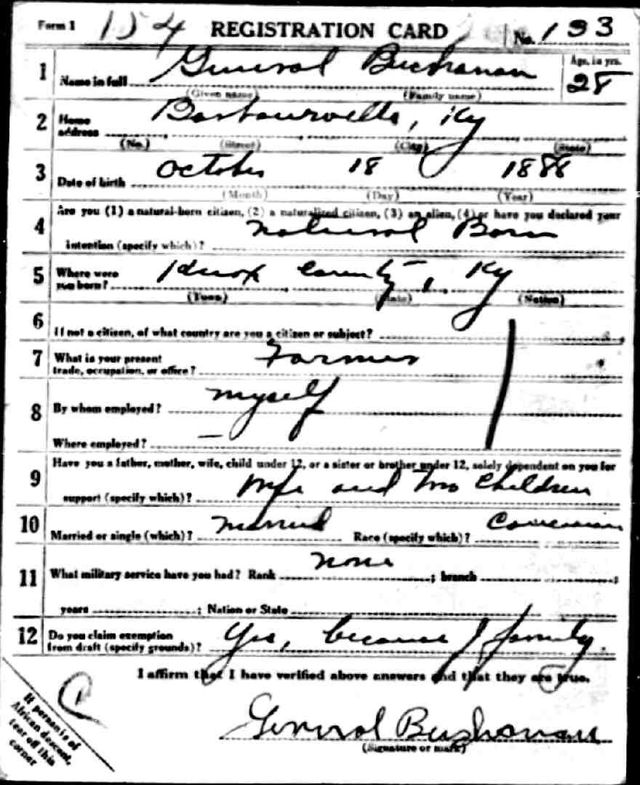 Form 1 154 REGISTRATION CARD No. 193
1 Name in full General Buchanan Age, in yrs. 28
(Given name) (Family name)
2 Home address Barbourville, Ky
(No.) (Street) (City) (State)
3 Date of birth October 18 1888
(Month) (Day) (Year)
4 Are you (1) a natural-born citizen, (2) a naturalized citizen, (3) an alien, (4) or have you declared your
intention (specify which)? Natural Born
5 Where were you born? Knox County, Ky
(Town) (State) (Nation)
6 If not a citizen, of what country are you a citizen or subject?
7 What is your present trade, occupation, or office? Farmer
8 By whom employed? myself
Where employed? —
9 Have you a father, mother, wife, child under 12, or a sister or brother under 12, solely dependent on you for
support (specify which)? Wife and two Children
10 Married or single (which)? Married Race (specify which)? Caucasian
11 What military service have you had? Rank None ; branch ;
years ; Nation or State
12 Do you claim exemption from draft (specify grounds)? Yes, because of family
I affirm that I have verified above answers and that they are true.
General Buchanan
(Signature or mark)
If person is of
African descent,
tear off this
corner